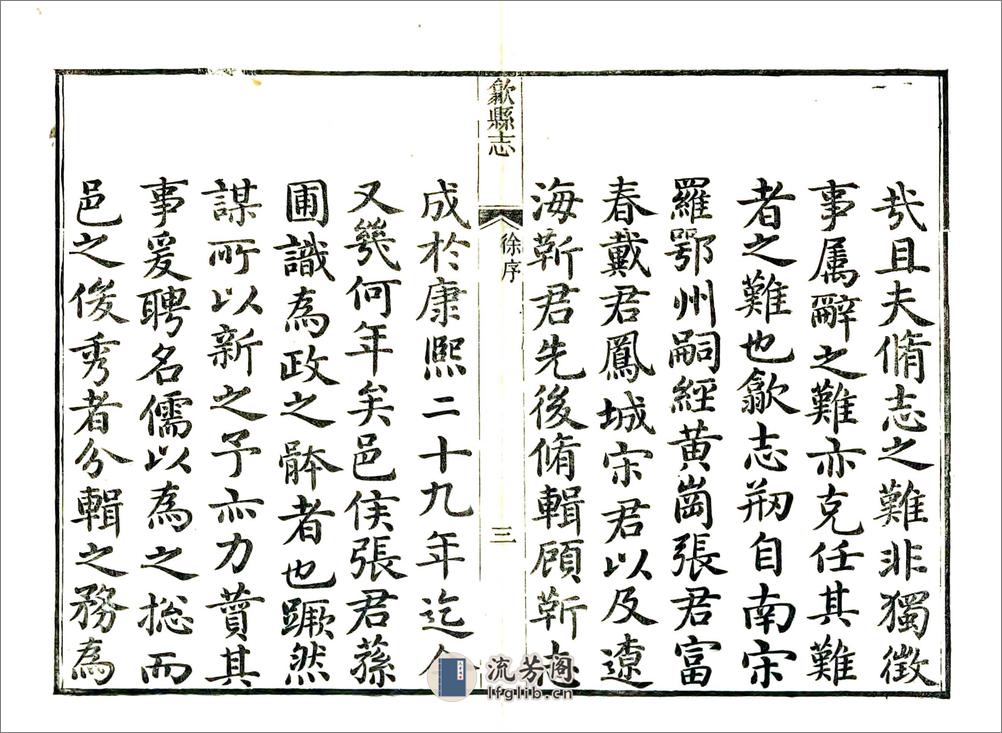 哉且夫脩志之難非獨徵
事属辭之難亦克任其難
者之難也歙志刱自南宋
羅鄂州嗣經黄崗張君富
春戴君鳳城宋君以及遼
海靳君先後脩輯顧靳志
歙縣志
徐序
三
成於康熙二十九年迄今
又幾何年矣邑侯張君蓀
圃識為政之骵者也蹶然
謀所以新之予亦力賛其
事爰聘名儒以為之捴而
邑之俊秀者分輯之務為
流芳阁
lfglib.cn